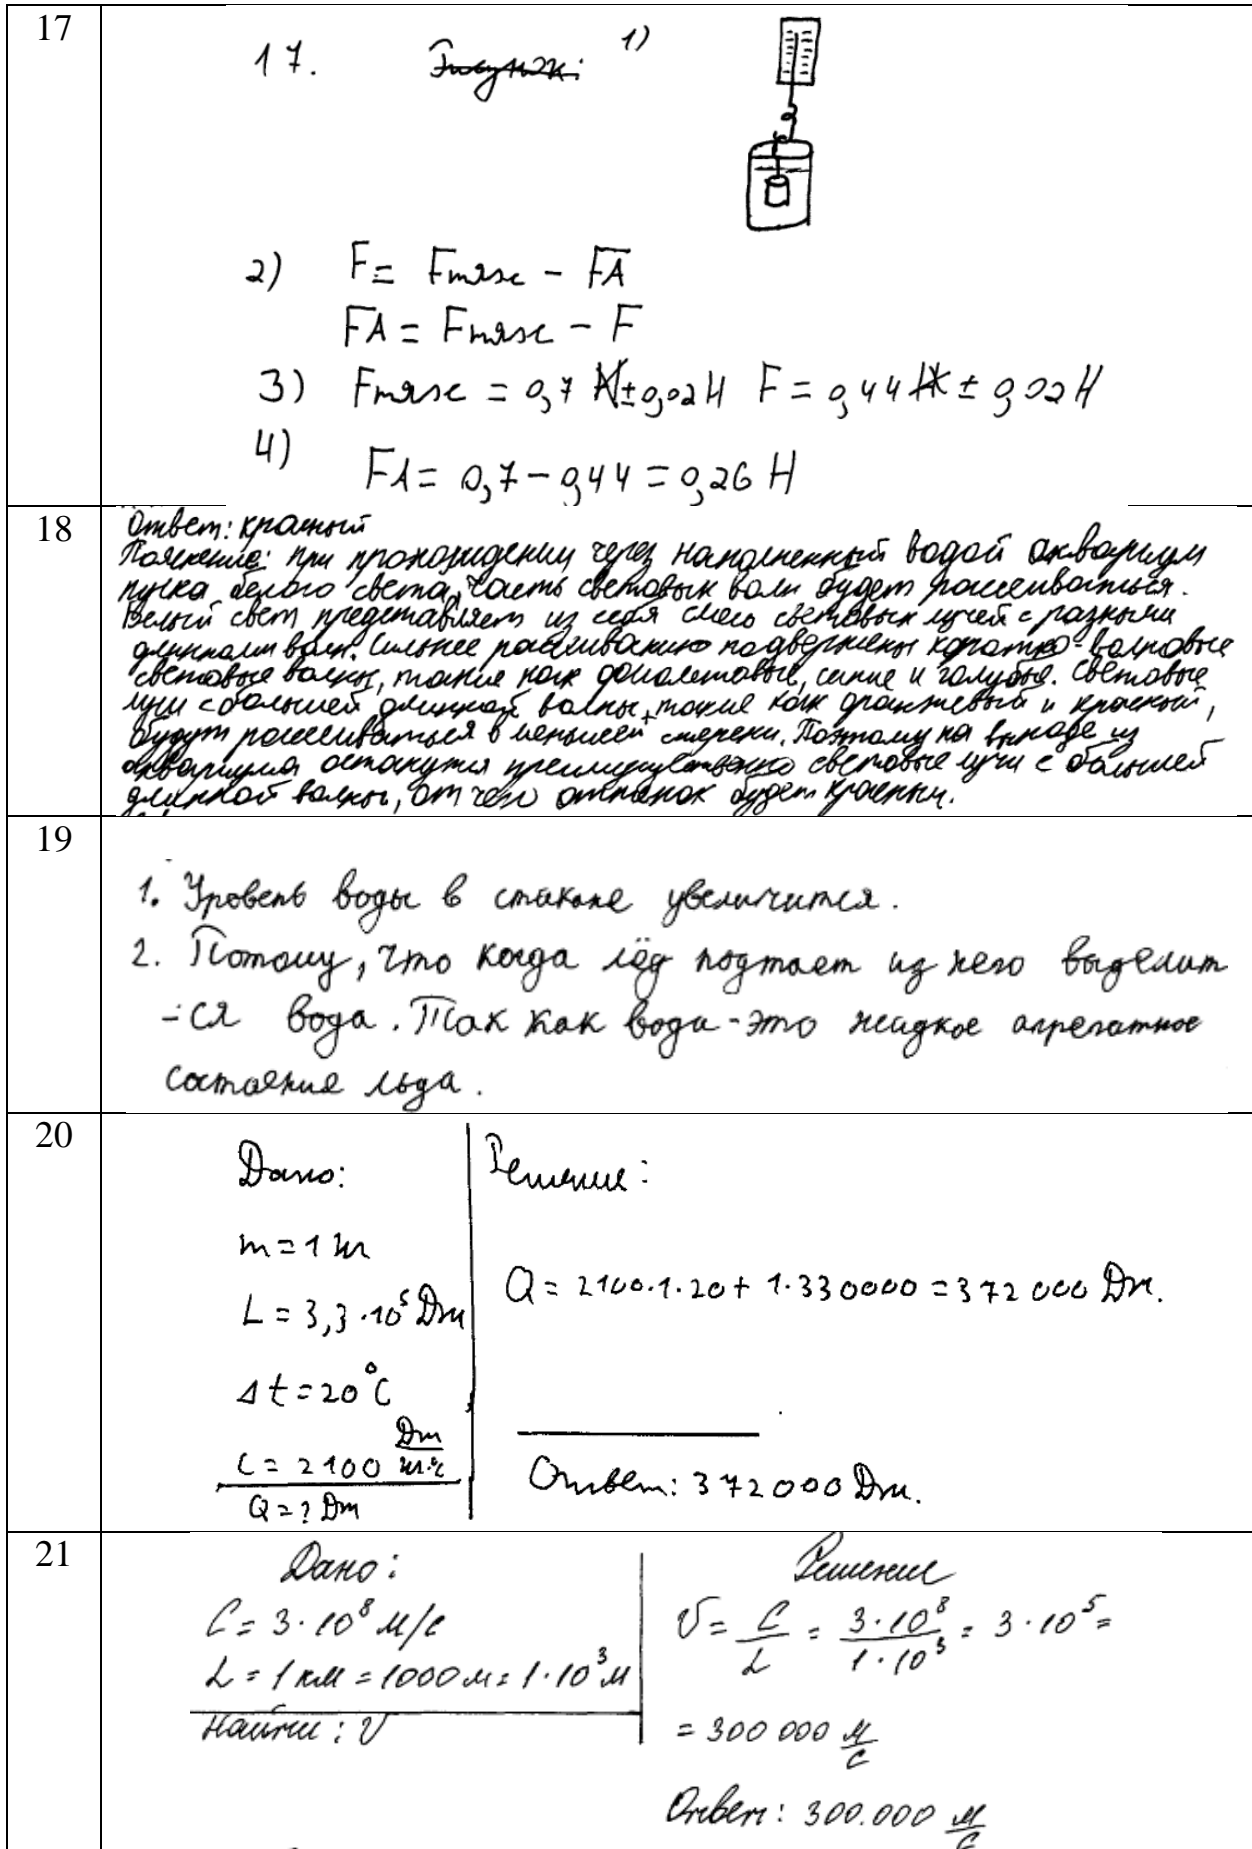 17
17. Рисунок: 1)
2) F = Fтяж - FA
FA = Fтяж - F
3) Fтяж = 0,7 Н ± 0,02 Н F = 0,44 Н ± 0,02 Н
4)
FA = 0,7 - 0,44 = 0,26 Н
18
Ответ: красный
Пояснение: при прохождении через наполненный водой аквариум
пучка белого света, часть световых волн будет рассеиваться.
Белый свет представляет из себя смесь световых лучей с разными
длинами волн. Сильнее рассеиванию подвержены коротко-волновые
световые волны, такие как фиолетовые, синие и голубые. Световые
лучи с большей длинной волны, такие как оранжевый и красный,
будут рассеиваться в меньшей степени. Поэтому на выходе из
аквариума останутся преимущественно световые лучи с большей
длинной волны, от чего оттенок будет красным.
19
1. Уровень воды в стакане увеличится.
2. Потому, что когда лёд подтает из него выделит
-ся вода. Так как вода - это жидкое агрегатное
состояние льда.
20
Дано:
Решение:
m = 1 кг
L = 3,3 · 10⁵ Дж
Q = 2100 · 1 · 20 + 1 · 330000 = 372 000 Дж.
Δt = 20°C
C = 2100 Дж/кг·°C
Q = ? Дж
Ответ: 372000 Дж.
21
Дано:
Решение
C = 3 · 10⁸ м/с
υ = C/L = 3·10⁸/1·10³ = 3 · 10⁵ =
L = 1 км = 1000 м = 1 · 10³ м
Найти: υ
= 300 000 м/с
Ответ: 300.000 м/с